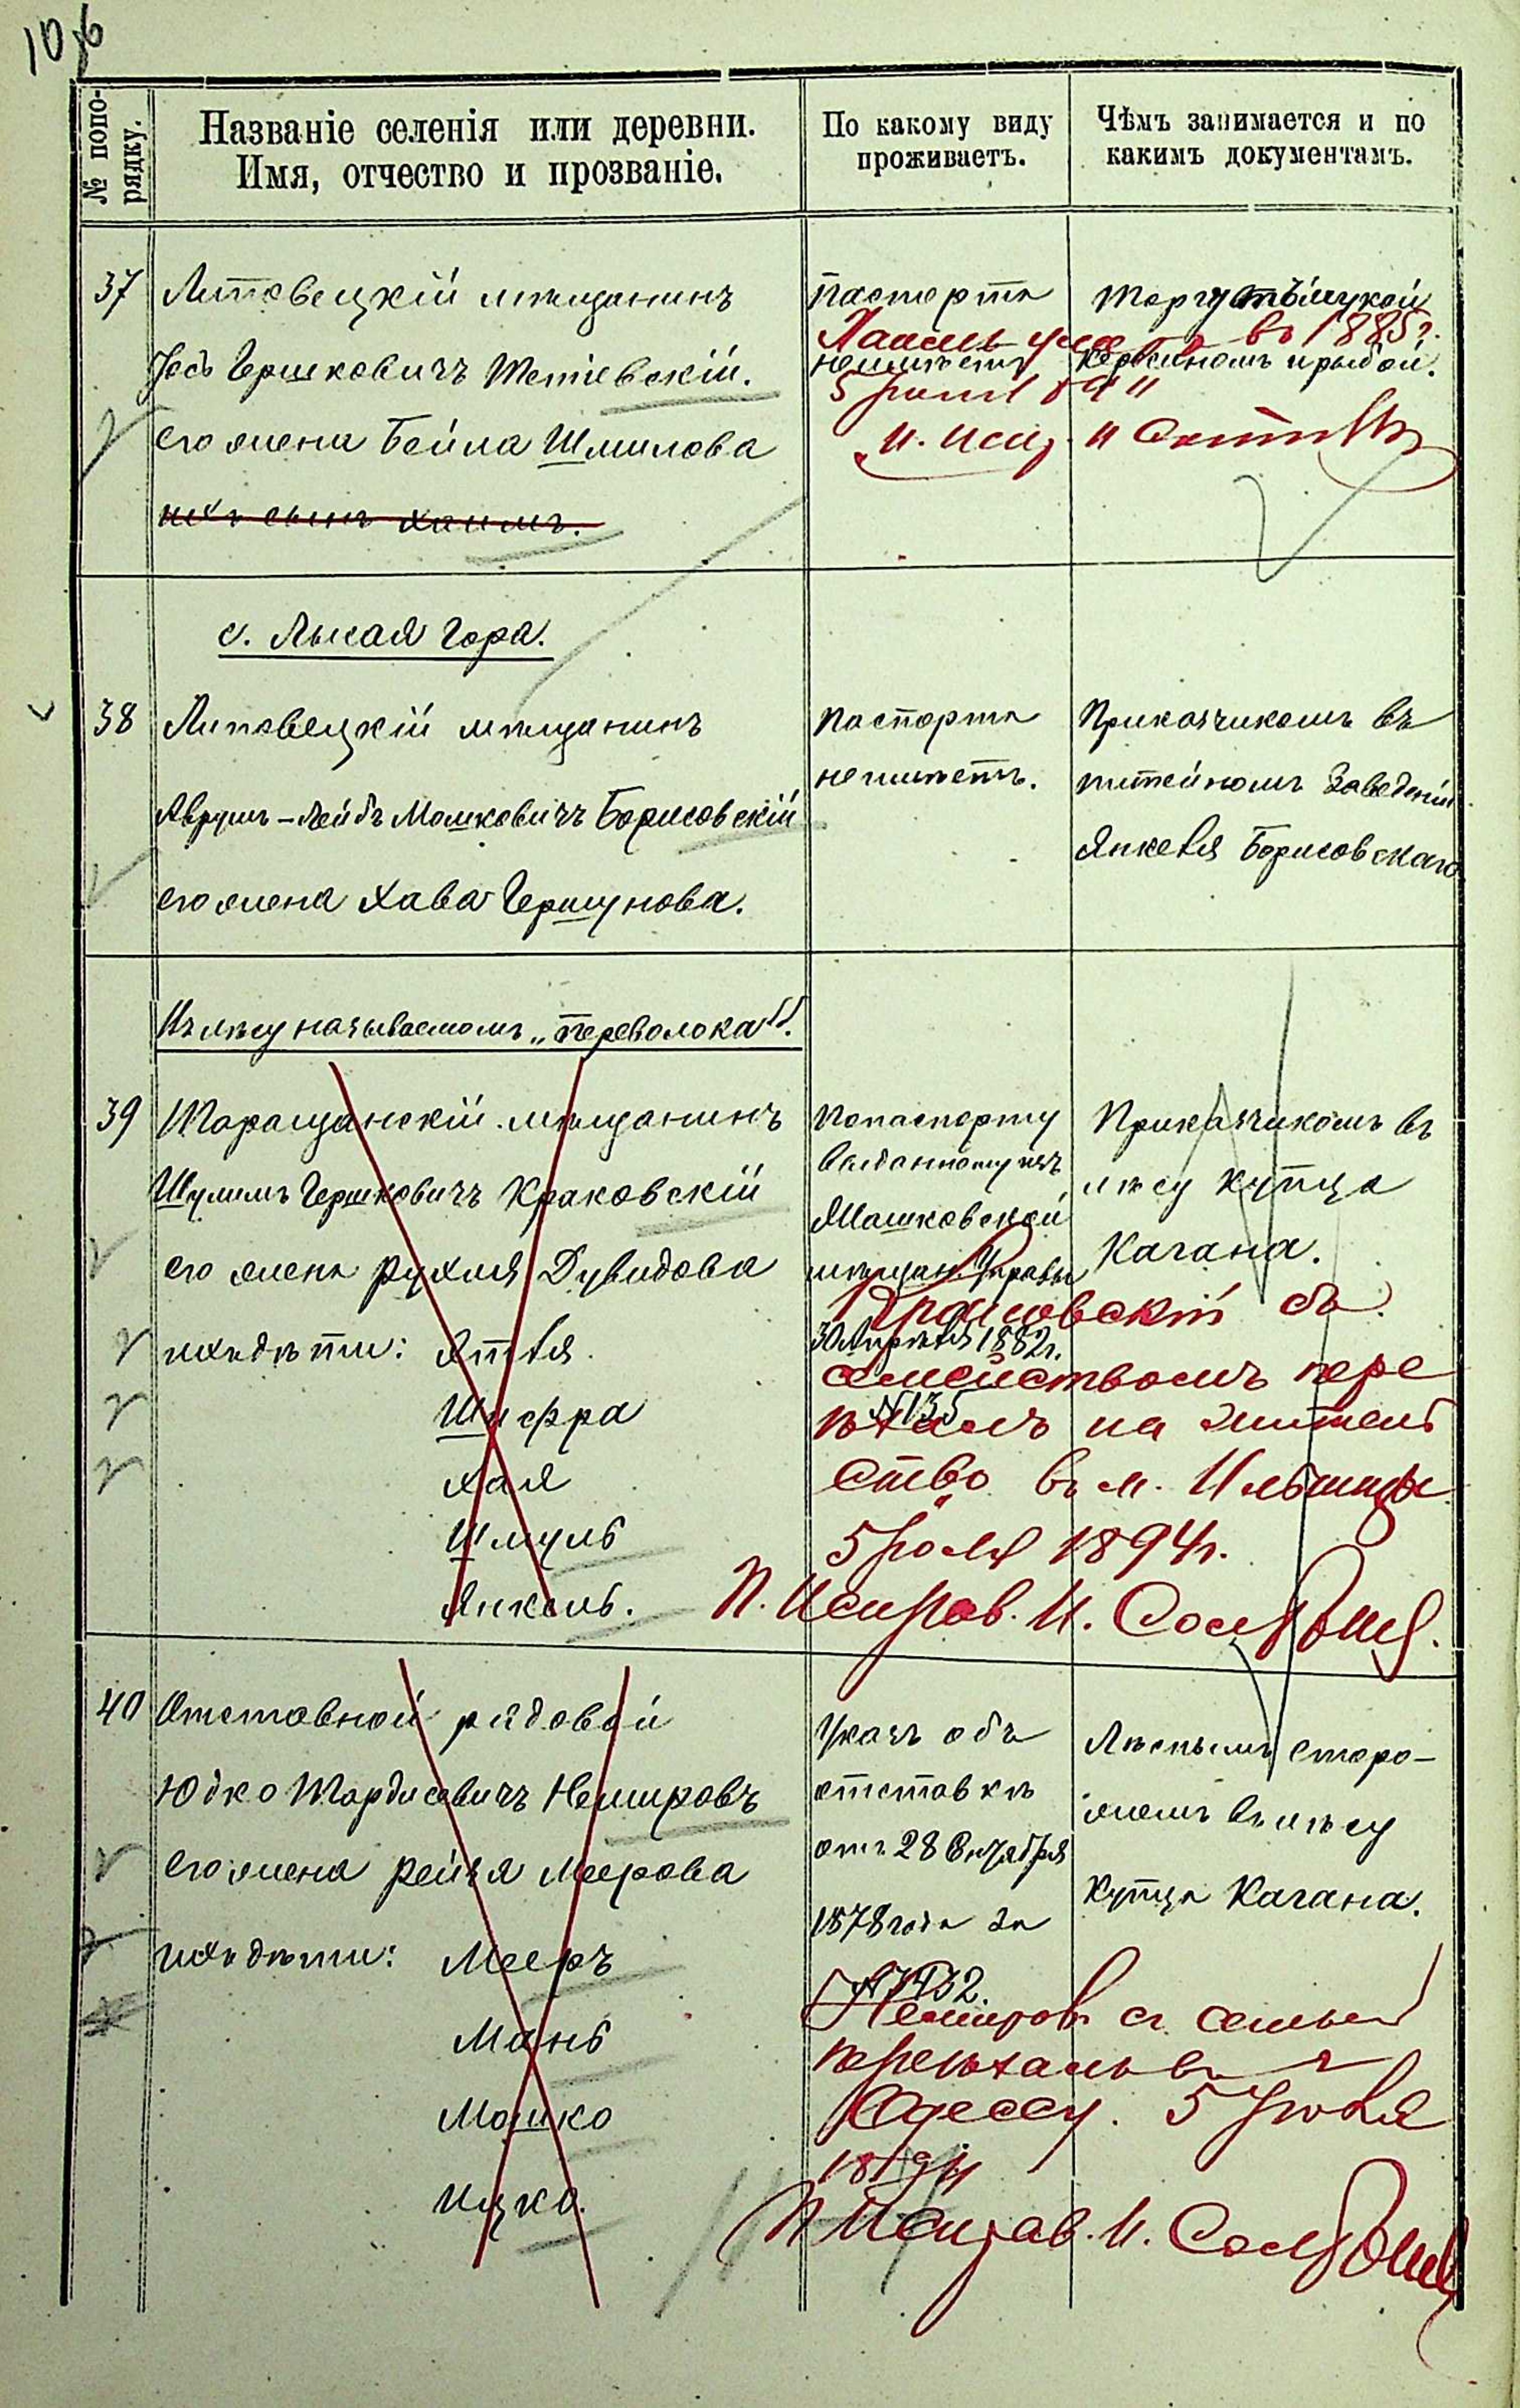 106
№ попо-
рядку.
Названіе селенія или деревни.
Имя, отчество и прозваніе.
По какому виду
проживаетъ.
Чѣмъ занимается и по
какимъ документамъ.
37
Липовецкій мѣщанинъ
Іось Гершковичъ Тетіевскій.
его жена Бейла Шмилова
ихъ сынъ Хаимъ.
паспорта
неимѣетъ
Торгуетъ мукой
керосиномъ и рыбой.
въ 1885г.
с. Лысая Гора.
38
Липовецкій мѣщанинъ
Аврумъ-Лейбъ Мошковичъ Борисовскій
его жена Хава Гершунова.
паспорта
неимѣетъ.
Приказчикомъ въ
питейномъ Заведеніи
Янкеля Борисовскаго
Въ лѣсу называемомъ „Переволока".
39
Таращанскій мѣщанинъ
Шулимъ Гершковичъ Краковскій
его жена Рухля Дувидова
ихъ дѣти: Этля
Шифра
Хая
Шмуль
Янкель.
Попаспорту
выданному изъ
Машковской
мѣщан. Управы
30 Апрѣля 1882г.
№135
Приказчикомъ въ
лѣсу Купца
Кагана.
Краковскій съ
семействомъ пере
ѣхалъ на житель
ство въ м. Ильинцы
5 Іюля 1894г.
П. Исправ. И.
40
Отставной рядовой
Юдко Мордисевичъ Немировъ
Его жена Рейзя Меерова
ихъ дѣти: Мееръ
Мань
Мошко
Ицко.
Указъ объ
отставкѣ
отъ 28 Октября
1878 года за
№ 3732.
Лѣснымъ сторо-
жемъ въ лѣсу
Купца Кагана.
Немиров съ семьей
переѣхалъ в г
Одессу. 5 Іюля
1894
П Исправ. И.